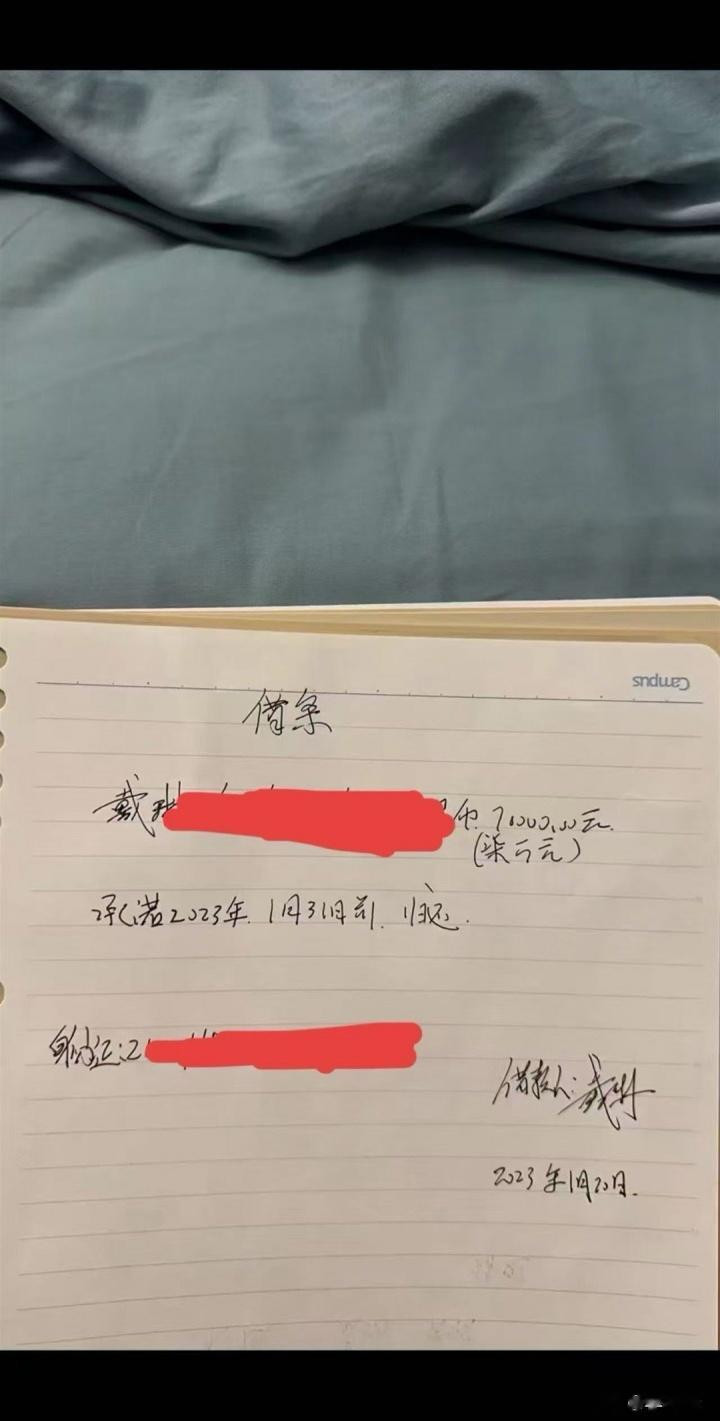 Campus
借条
戴 币 70000.00元.
(柒万元)
承诺2023年.1月31日前.归还.
身份证:2
借款人:戴琳
2023年1月20日.